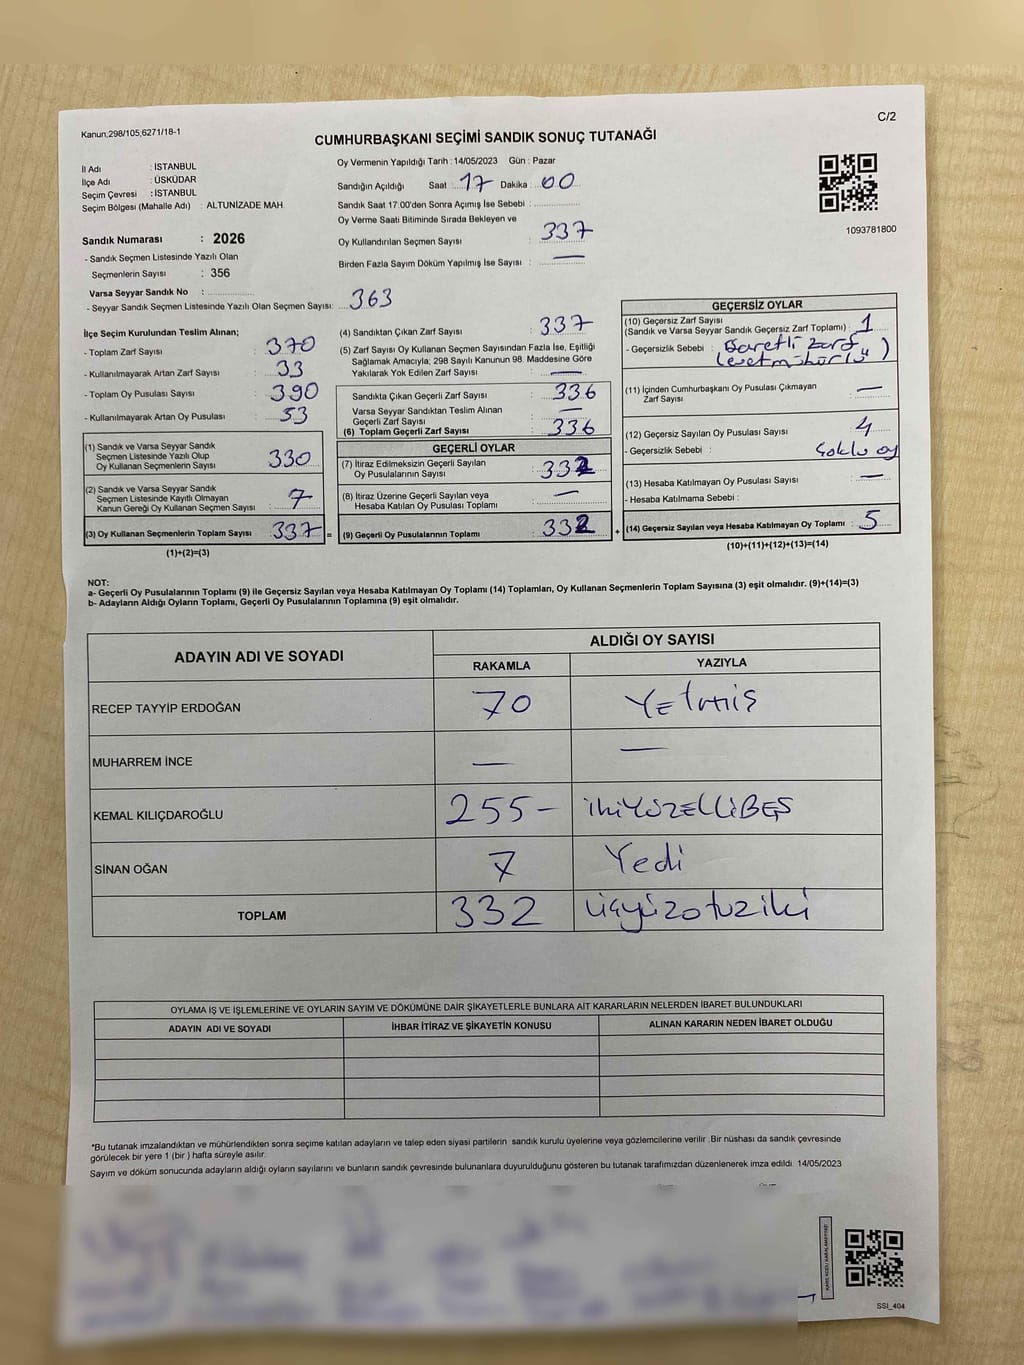 Kanun;298/105;6271/18-1
C/2
CUMHURBAŞKANI SEÇİMİ SANDIK SONUÇ TUTANAĞI
İl Adı : İSTANBUL
İlçe Adı : ÜSKÜDAR
Seçim Çevresi : İSTANBUL
Seçim Bölgesi (Mahalle Adı) : ALTUNİZADE MAH.
Sandık Numarası : 2026
- Sandık Seçmen Listesinde Yazılı Olan
Seçmenlerin Sayısı : 356
Varsa Seyyar Sandık No :
- Seyyar Sandık Seçmen Listesinde Yazılı Olan Seçmen Sayısı: 363
Oy Vermenin Yapıldığı Tarih : 14/05/2023 Gün : Pazar
Sandığın Açıldığı Saat : 17 Dakika : 00
Sandık Saat 17.00'den Sonra Açımış İse Sebebi :
Oy Verme Saati Bitiminde Sırada Bekleyen ve
Oy Kullandırılan Seçmen Sayısı : 337
Birden Fazla Sayım Döküm Yapılmış İse Sayısı : —
1093781800
İlçe Seçim Kurulundan Teslim Alınan;
- Toplam Zarf Sayısı : 370
- Kullanılmayarak Artan Zarf Sayısı : 33
- Toplam Oy Pusulası Sayısı : 390
- Kullanılmayarak Artan Oy Pusulası : 53
(1) Sandık ve Varsa Seyyar Sandık
Seçmen Listesinde Yazılı Olup
Oy Kullanan Seçmenlerin Sayısı : 330
(2) Sandık ve Varsa Seyyar Sandık
Seçmen Listesinde Kayıtlı Olmayan
Kanun Gereği Oy Kullanan Seçmen Sayısı : 7
(3) Oy Kullanan Seçmenlerin Toplam Sayısı : 337 =
(1)+(2)=(3)
(4) Sandıktan Çıkan Zarf Sayısı : 337
(5) Zarf Sayısı Oy Kullanan Seçmen Sayısından Fazla İse, Eşitliği
Sağlamak Amacıyla; 298 Sayılı Kanunun 98. Maddesine Göre
Yakılarak Yok Edilen Zarf Sayısı : —
Sandıkta Çıkan Geçerli Zarf Sayısı : 336
Varsa Seyyar Sandıktan Teslim Alınan
Geçerli Zarf Sayısı : —
(6) Toplam Geçerli Zarf Sayısı : 336
GEÇERLİ OYLAR
(7) İtiraz Edilmeksizin Geçerli Sayılan
Oy Pusulalarının Sayısı : 332
(8) İtiraz Üzerine Geçerli Sayılan veya
Hesaba Katılan Oy Pusulası Toplamı : —
(9) Geçerli Oy Pusulalarının Toplamı : 332 +
GEÇERSİZ OYLAR
(10) Geçersiz Zarf Sayısı
(Sandık ve Varsa Seyyar Sandık Geçersiz Zarf Toplamı) : 1
- Geçersizlik Sebebi : İşaretli zarf
(evet mühürlü)
(11) İçinden Cumhurbaşkanı Oy Pusulası Çıkmayan
Zarf Sayısı : —
(12) Geçersiz Sayılan Oy Pusulası Sayısı : 4
- Geçersizlik Sebebi : Çoklu oy
(13) Hesaba Katılmayan Oy Pusulası Sayısı : —
- Hesaba Katılmama Sebebi :
(14) Geçersiz Sayılan veya Hesaba Katılmayan Oy Toplamı : 5
(10)+(11)+(12)+(13)=(14)
NOT:
a- Geçerli Oy Pusulalarının Toplamı (9) ile Geçersiz Sayılan veya Hesaba Katılmayan Oy Toplamı (14) Toplamları, Oy Kullanan Seçmenlerin Toplam Sayısına (3) eşit olmalıdır. (9)+(14)=(3)
b- Adayların Aldığı Oyların Toplamı, Geçerli Oy Pusulalarının Toplamına (9) eşit olmalıdır.
ADAYIN ADI VE SOYADI ALDIĞI OY SAYISI
RAKAMLA YAZIYLA
RECEP TAYYİP ERDOĞAN 70 Yetmiş
MUHARREM İNCE — —
KEMAL KILIÇDAROĞLU 255- ikiyüzelliBEŞ
SİNAN OĞAN 7 Yedi
TOPLAM 332 üçyüzotuziki
OYLAMA İŞ VE İŞLEMLERİNE VE OYLARIN SAYIM VE DÖKÜMÜNE DAİR ŞİKAYETLERLE BUNLARA AİT KARARLARIN NELERDEN İBARET BULUNDUKLARI
ADAYIN ADI VE SOYADI İHBAR İTİRAZ VE ŞİKAYETİN KONUSU ALINAN KARARIN NEDEN İBARET OLDUĞU
*Bu tutanak imzalandıktan ve mühürlendikten sonra seçime katılan adayların ve talep eden siyasi partilerin sandık kurulu üyelerine veya gözlemcilerine verilir. Bir nüshası da sandık çevresinde
görülecek bir yere 1 (bir ) hafta süreyle asılır.
Sayım ve döküm sonucunda adayların aldığı oyların sayılarını ve bunların sandık çevresinde bulunanlara duyurulduğunu gösteren bu tutanak tarafımızdan düzenlenerek imza edildi. 14/05/2023
SSI_404